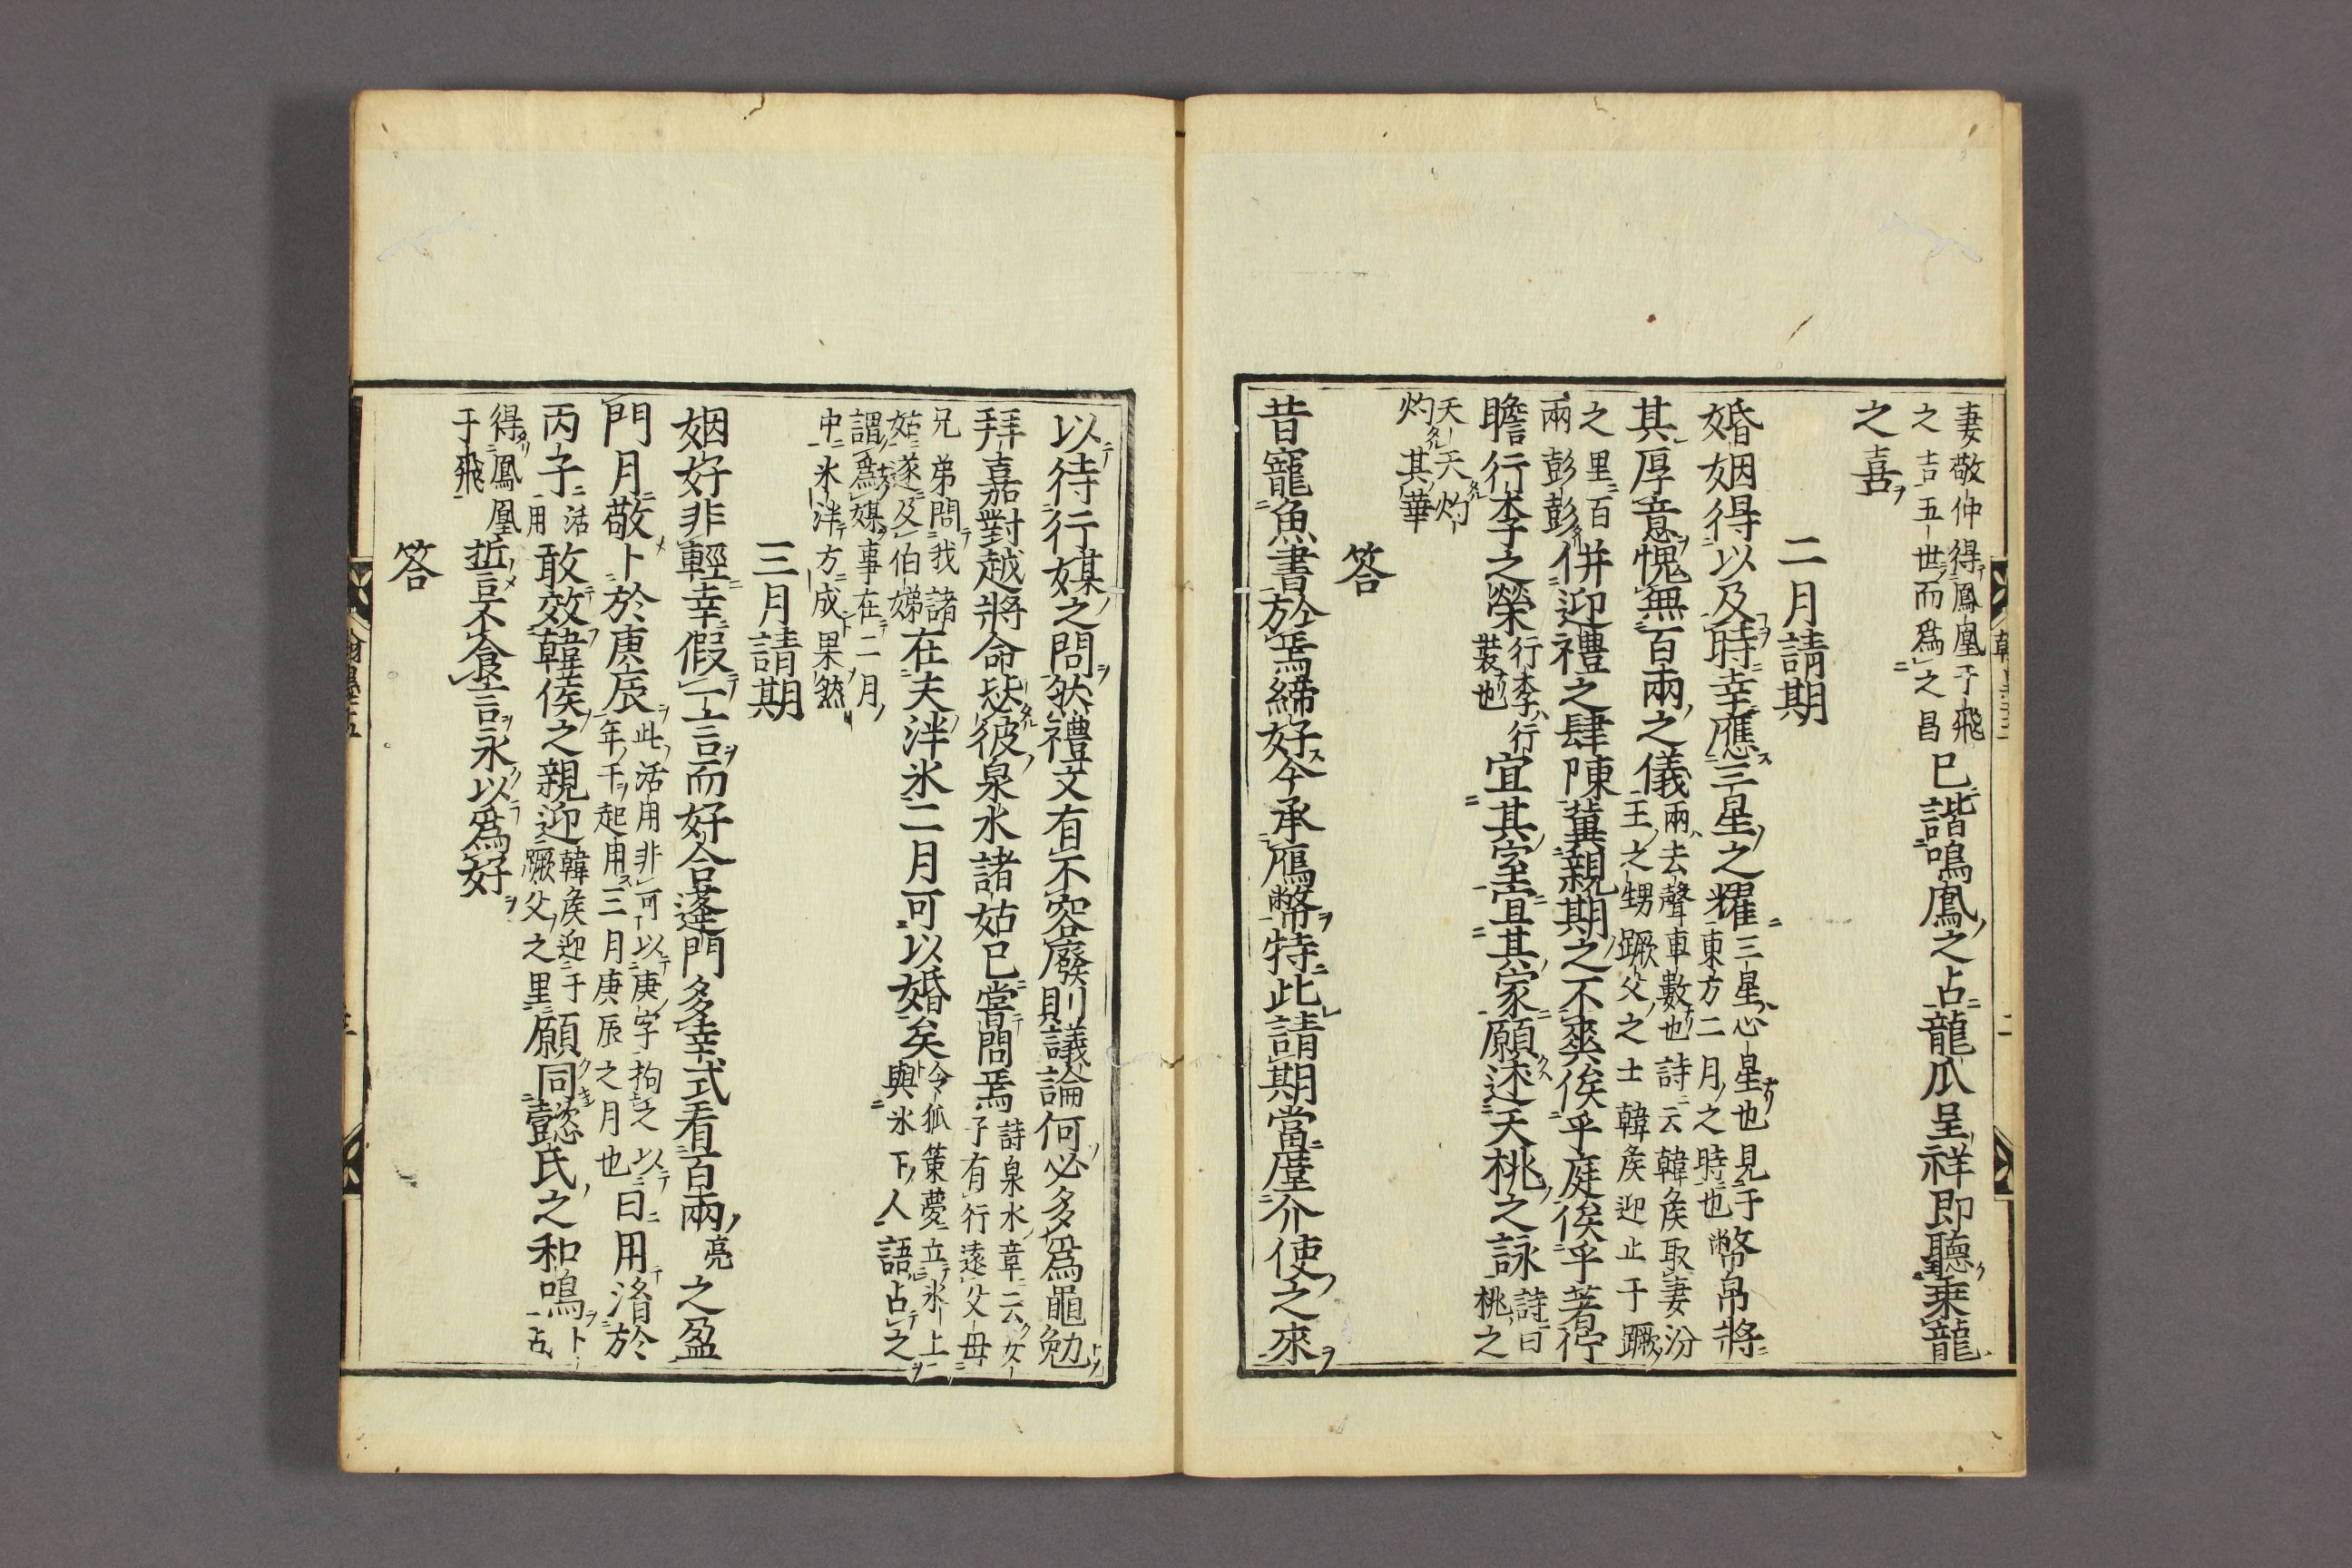 妻敬仲得鳳凰于飛之吉五世而爲之昌巳諧鳴鳳之占龍爪呈祥即聽乗龍
之喜
二月請期
婚姻得以及時幸應三星之耀三星心星也見于東方二月之時也幣帛將
其厚意愧無百兩之儀兩去聲車數也詩云韓矦取妻汾王之甥蹶父之士韓矦迎止于蹶
之里百兩彭彭併迎禮之肆陳冀親期之不爽俟乎庭俟乎著佇
瞻行李之榮行李行裝也宜其室宜其家願述夭桃之詠詩曰桃之
夭夭灼灼其華
答
昔寵魚書於焉締好今承鴈幣特此請期當廑介使之來
以待行媒之問然禮文有不容廢則議論何必多爲黽勉
拜嘉對越將命毖彼泉水諸姑巳嘗問焉詩泉水章云女子有行遠父母
兄弟問我諸姑遂及伯娣在夫泮氷二月可以婚矣令狐策夢立氷上與氷下人語占之
謂爲媒事在二月中氷泮方成果然
三月請期
姻好非輕幸假一言而好合蓬門多幸式看百兩亮之盈
門月敬卜於庚辰此活用非可以庚字拘之以年干起用三月庚辰之月也曰用涓於
丙子活用敢效韓侯之親迎韓矦迎于蹶父之里願同懿氏之和鳴卜占
得鳳凰于飛誓不食言永以爲好
答